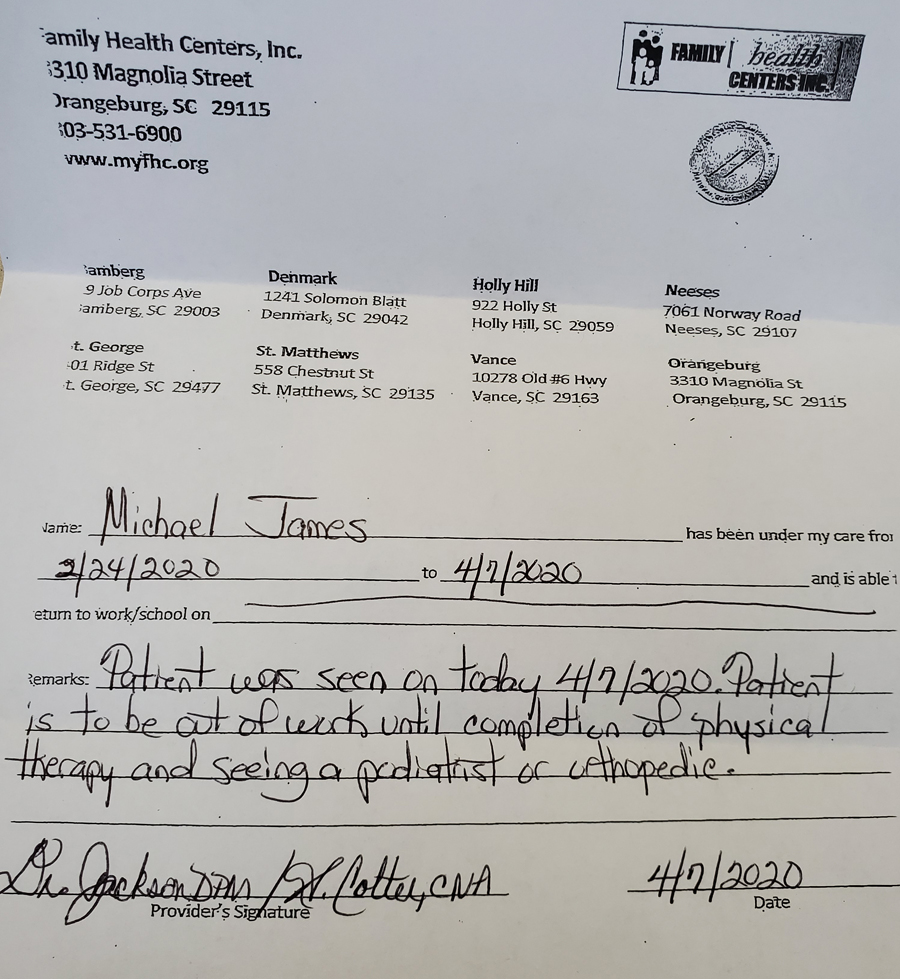 amily Health Centers, Inc.
3310 Magnolia Street
Orangeburg, SC 29115
803-531-6900
www.myfhc.org
FAMILY health
CENTERS INC.
amberg
9 Job Corps Ave
amberg, SC 29003
Denmark
1241 Solomon Blatt
Denmark, SC 29042
Holly Hill
922 Holly St
Holly Hill, SC 29059
Neeses
7061 Norway Road
Neeses, SC 29107
t. George
01 Ridge St
t. George, SC 29477
St. Matthews
558 Chestnut St
St. Matthews, SC 29135
Vance
10278 Old #6 Hwy
Vance, SC 29163
Orangeburg
3310 Magnolia St
Orangeburg, SC 29115
Name: Michael James has been under my care from
2/24/2020 to 4/7/2020 and is able t
eturn to work/school on
Remarks: Patient was seen on today 4/7/2020. Patient
is to be out of work until completion of physical
therapy and seeing a podiatrist or orthopedic.
Dr. Jackson DPM / Cotter, CNA 4/7/2020
Provider's Signature Date